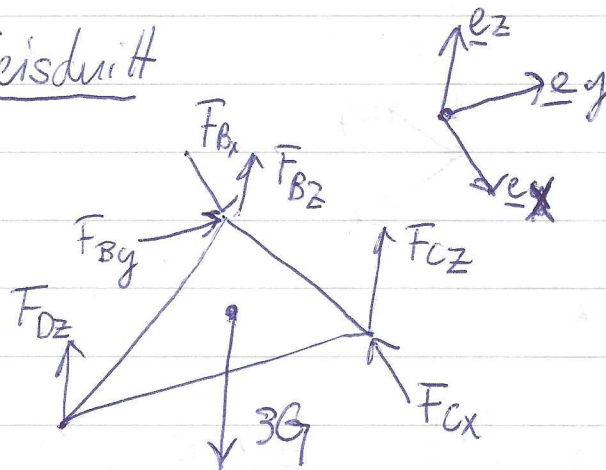 eisdnitt
ez
ey
ex
FBx
FBz
FBy
FCz
FDz
FCx
3G